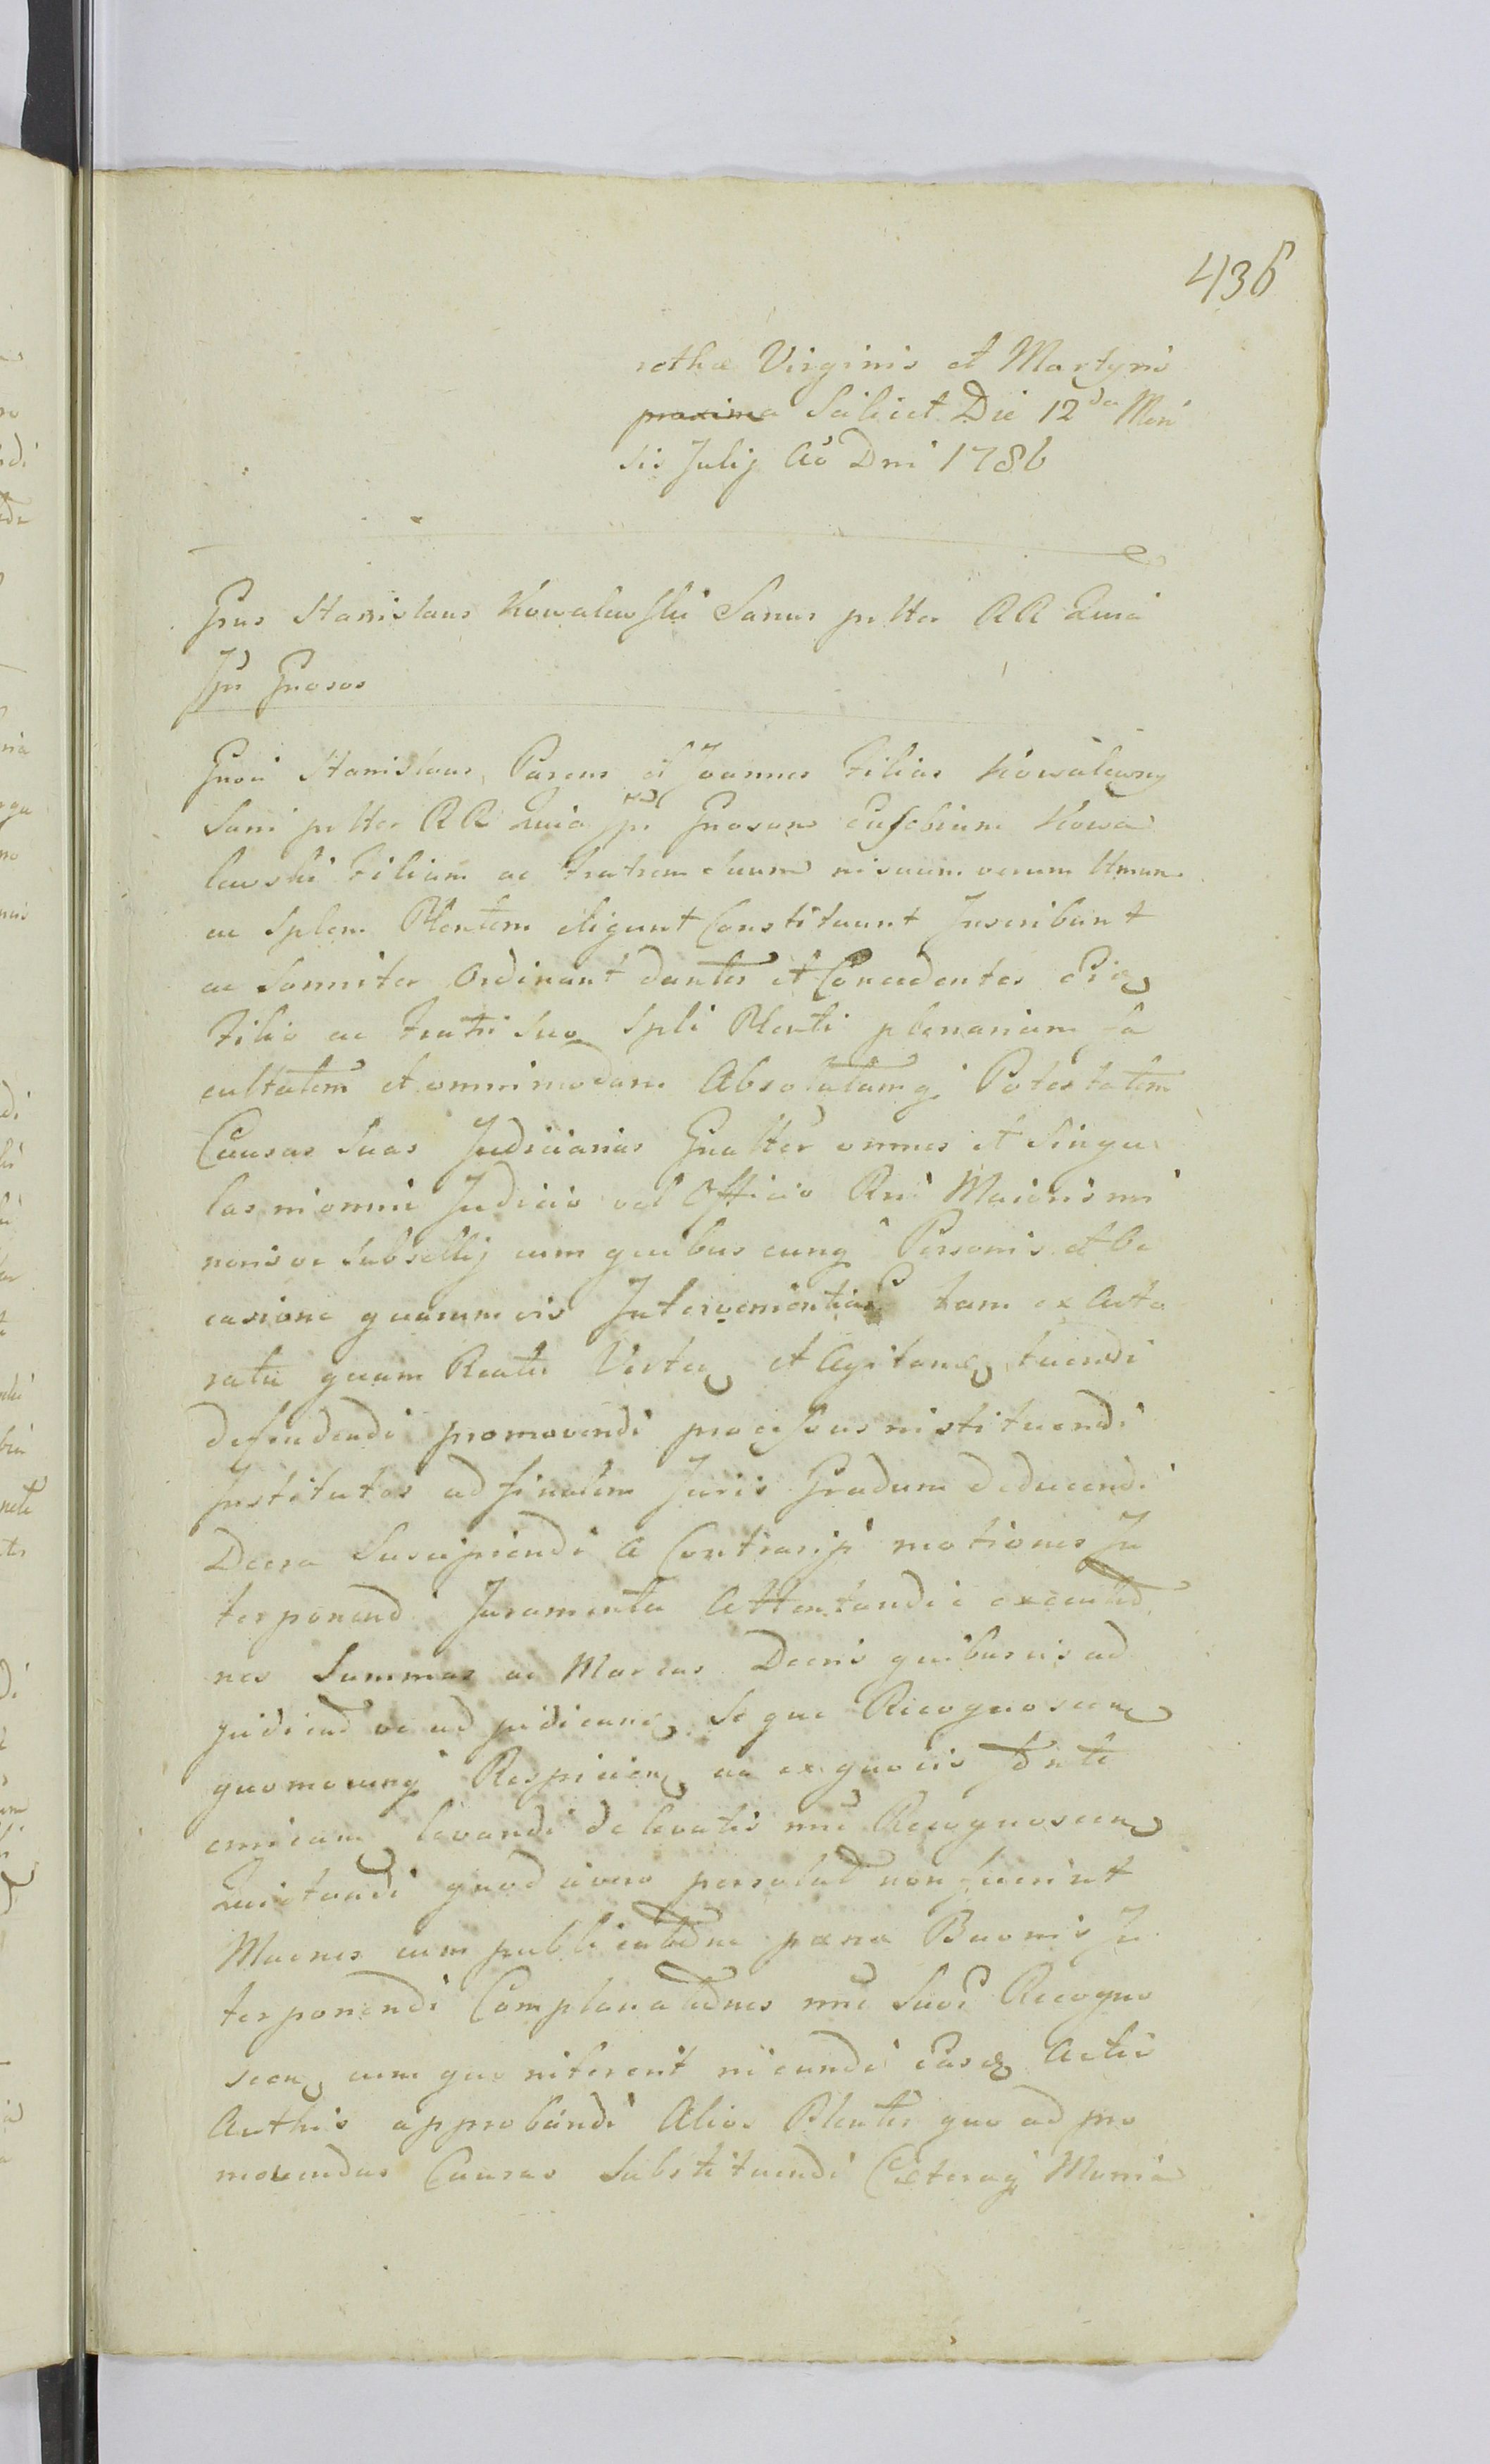 436
rothæ Virginis et Martyris
proxima Scilicet Die 12da Men
sis Julij Aô Dni 1786
Gnus Stanislaus Kowalewski Sanus pr tter RR Quia
Ipse Gnosos
Gnosi Stanislaus Parens et Joannes Filius Kowalewscy
Sani pr tter RR Quia ipsi Gnosum Eusebium Kowa
lewski Filium ac Fratrem Suum in suum verum ttmum
ac Splem Plentem eligunt Constituunt Inscribunt
ac Sonniter Ordinant dantes et Concedentes Eid
Filio ac Fratri Suo Spli Plenti plenariam fa
cultatem et omnimodam Absolutamq Potestatem
Causas Suas Judiciarias Gnaliter omnes et Singu
las in omni Judicio vel Officio Rni Maioris mi
noris ve Subsellij cum quibus cunq Personis et Oc
casione quarumvis Intervenientias tam ex Acto
ratu quam Reatu Verten et Agitan tuendi
defendendi promovendi processus instituendi
Institutos ad finalem Juris Gradum deducendi
Decra Suscipiendi a Contrarijs motiones In
terponend Juramenta Attentandi executio
nes Summas ac Marcas Decris quibusvis ad
judicand ve ad judican Se que Recognoscen
quomocunq Respicien ac ex quovis fonte
emican levandi de levatis nne Recognoscen
Quietandi quod si vero persolut non fuerint
Maenes cum publicatione pæna Bannis In
terponendi Complanationes nne Suoi Recogno
scen cum quo interent ineundi Easq Actis
Authis approbandi Alios Plentes quo ad pro
movendas Causas Substituendi Cæteraq Munia